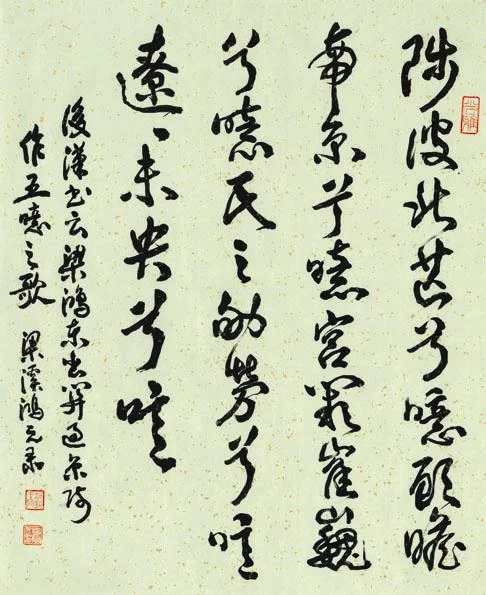 陟彼北芒兮噫顧瞻
帝京兮噫宮闕崔巍
兮噫民之劬勞兮噫
遼々未央兮噫
後漢書云梁鴻東出關過京師
作五噫之歌 梁溪鴻元录